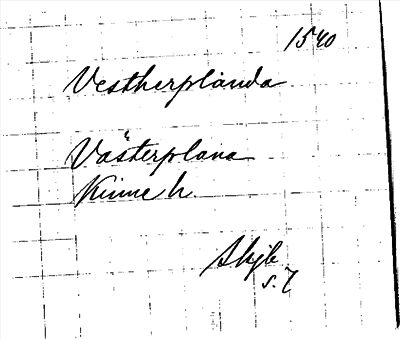 1540
Vestherplanda
Västerplana
Kinne h.
Skjb
s. 7